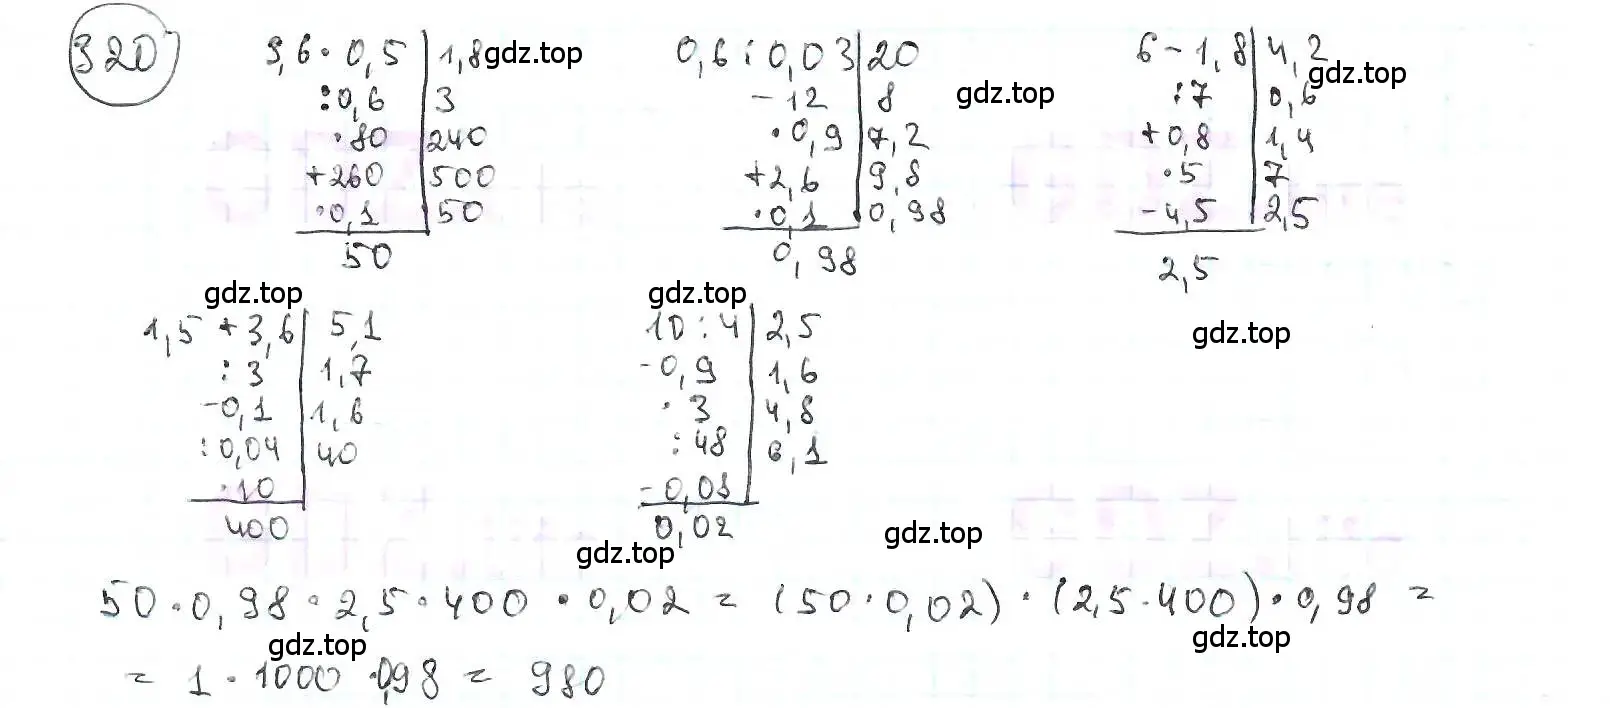 320
3,6 · 0,5 | 1,8
: 0,6 | 3
· 80 | 240
+ 260 | 500
· 0,1 | 50
50
0,6 : 0,03 | 20
- 12 | 8
· 0,9 | 7,2
+ 2,6 | 9,8
· 0,1 | 0,98
0,98
6 - 1,8 | 4,2
: 7 | 0,6
+ 0,8 | 1,4
· 5 | 7
- 4,5 | 2,5
2,5
gdz.top
gdz.top
gdz.top
gdz.top
gdz.top
gdz.top
1,5 + 3,6 | 5,1
: 3 | 1,7
- 0,1 | 1,6
: 0,04 | 40
· 10
400
10 : 4 | 2,5
- 0,9 | 1,6
· 3 | 4,8
: 48 | 0,1
- 0,08
0,02
gdz.top
gdz.top
50 · 0,98 · 2,5 · 400 · 0,02 = (50 · 0,02) · (2,5 · 400) · 0,98 =
gdz.top
gdz.top
= 1 · 1000 · 0,98 = 980